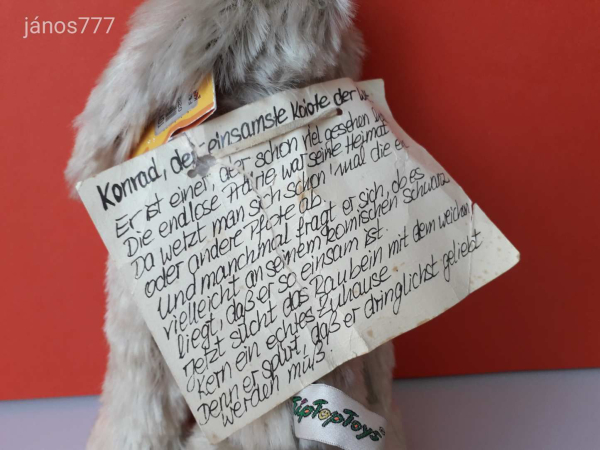 jános777
Konrad, der einsamste Kojote der
Er ist einer, der schon viel gesehen
Die endlose Prärie war seine Heimat
Da wetzt man sich schon 'mal die
oder andere Pfote ab.
Und manchmal fragt er sich, ob es
vielleicht an seinem komischen Schwanz
liegt, daß er so einsam ist.
Jetzt sucht das Rauhbein mit dem weichen
Kern ein echtes Zuhause.
Denn er spürt, daß er dringlichst geliebt
werden muß.
TipTopToys